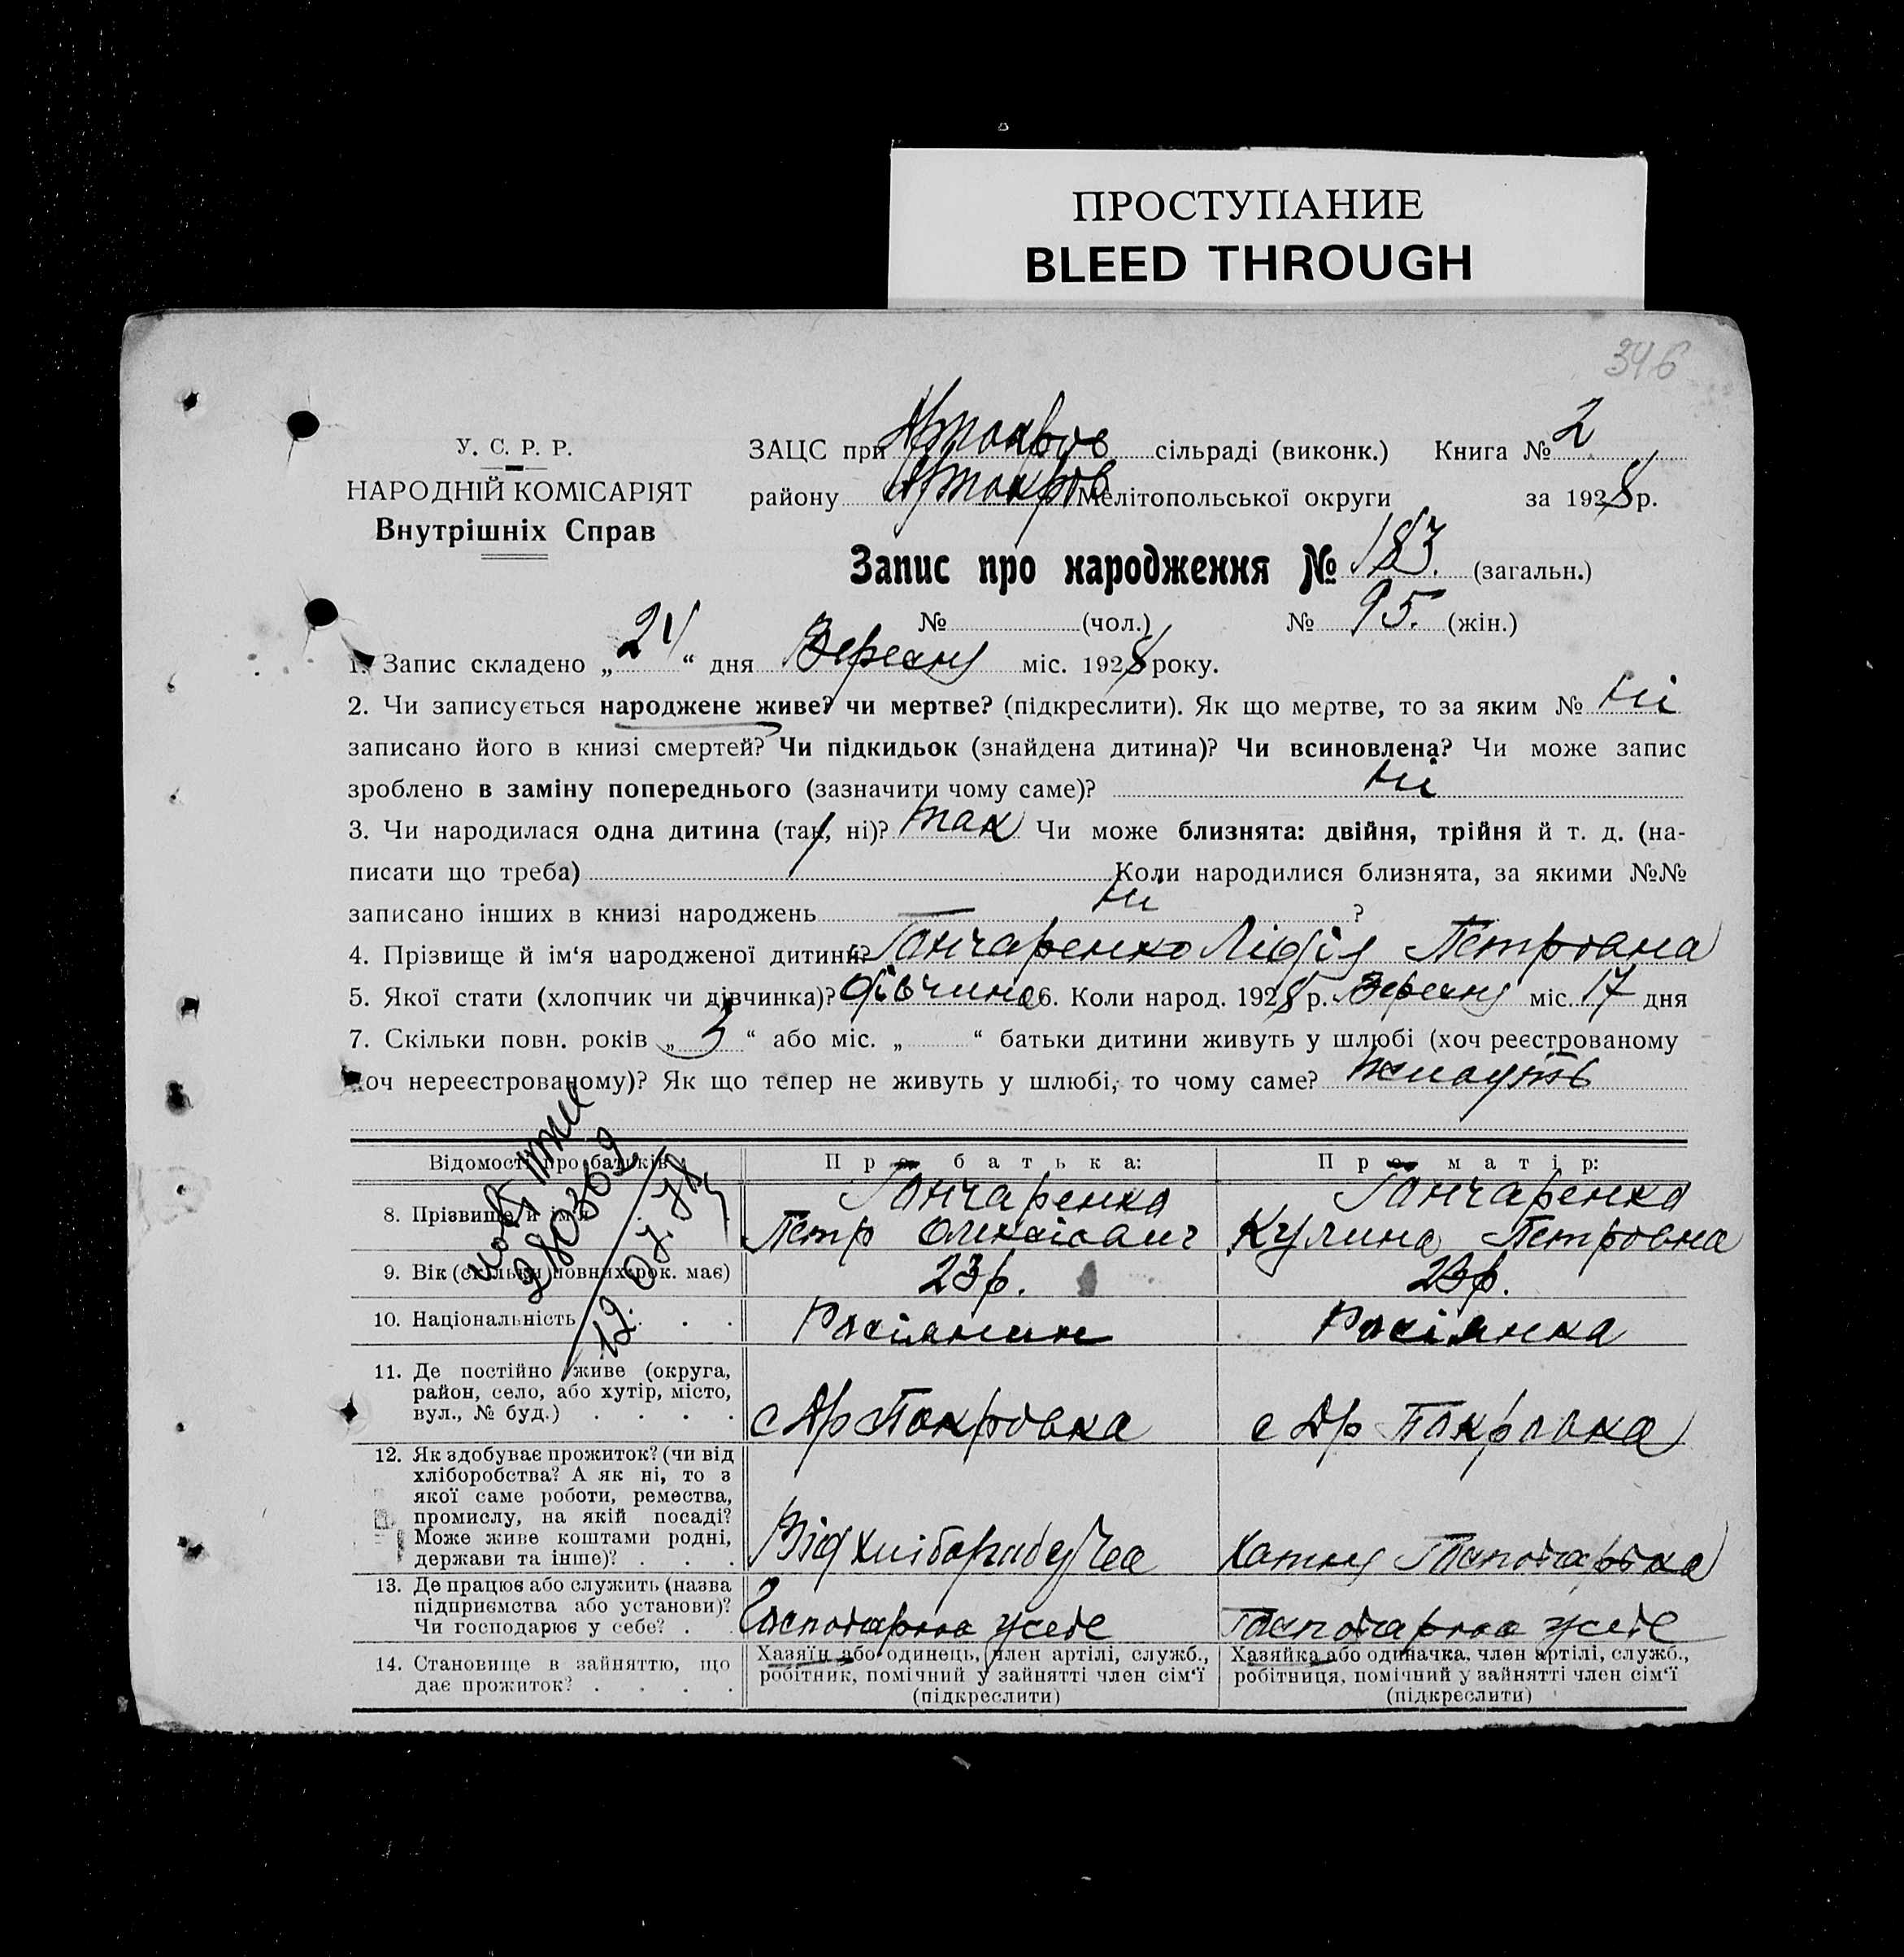 ПРОСТУПАНИЕ
BLEED THROUGH
346
У. С. Р. Р.
НАРОДНІЙ КОМІСАРІЯТ
Внутрішніх Справ
ЗАЦС при сільраді (виконк.) Книга № 2
району Мелітопольської округи за 1928 р.
Запис про народження № 183. (загальн.)
№ (чол.) № 95. (жін.)
1. Запис складено „24“ дня Вересня міс. 1928 року.
2. Чи записується народжене живе? чи мертве? (підкреслити). Як що мертве, то за яким № ні
записано його в книзі смертей? Чи підкидьок (знайдена дитина)? Чи всиновлена? Чи може запис
зроблено в заміну попереднього (зазначити чому саме)? ні
3. Чи народилася одна дитина (так, ні)? так Чи може близнята: двійня, трійня й т. д. (на-
писати що треба) Коли народилися близнята, за якими №№
записано інших в книзі народжень ні ?
4. Прізвище й ім‘я народженої дитини? Гончаренко Лідія Петровна
5. Якої стати (хлопчик чи дівчинка)? дівчина 6. Коли народ. 1928 р. Вересня міс. 17 дня
7. Скільки повн. років „3“ або міс. „ “ батьки дитини живуть у шлюбі (хоч реєстрованому
хоч нереєстрованому)? Як що тепер не живуть у шлюбі, то чому саме? живуть
Відомості про батьків Про батька: Про матір:
8. Прізвище й ім‘я Гончаренко Гончаренко
Петр Кулина Петровна
280309
9. Вік (скільки повних рок. має) 23 р. 23 р.
10. Національність Росіянин Росіянка
11. Де постійно живе (округа,
район, село, або хутір, місто,
вул., № буд.) с Др Покровка с Др Покровка
12. Як здобуває прожиток? (чи від
хліборобства? А як ні, то з
якої саме роботи, ремества,
промислу, на якій посаді?
Може живе коштами родні,
держави та інше)? Від Хатня
13. Де працює або служить (назва
підприємства або установи)?
Чи господарює у себе?
14. Становище в зайняттю, що
дає прожиток?
Хазяїн або одинець, член артілі, служб.,
робітник, помічний у зайнятті член сім‘ї
(підкреслити)
Хазяйка або одиначка. член артілі, служб.,
робітниця, помічний у зайнятті член сім‘ї
(підкреслити)